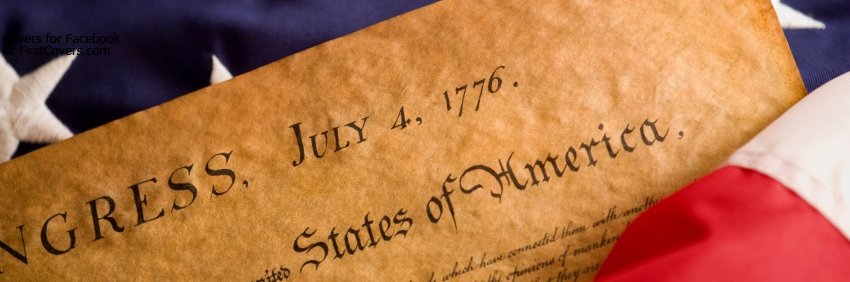 Covers for Facebook
At FirstCovers.com
NGRESS, JULY 4, 1776.
United States of America,
which have connected them with another
the opinions of mankind
they are